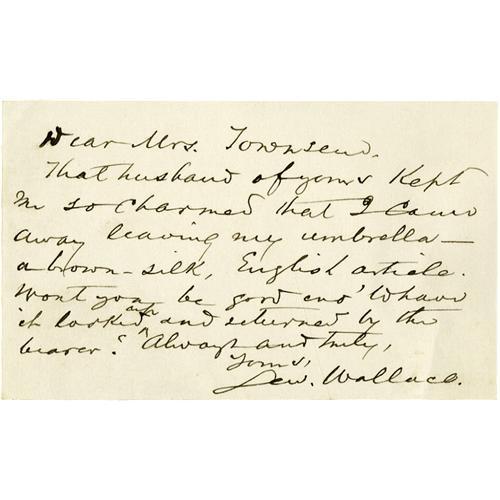 Dear Mrs. Townsend.
That husband of yours kept
me so charmed that I came
away leaving my umbrella —
a brown-silk, English article.
Wont you be good eno' to have
it looked up and returned by the
bearer? Always and truly,
Yours,
Lew. Wallace.